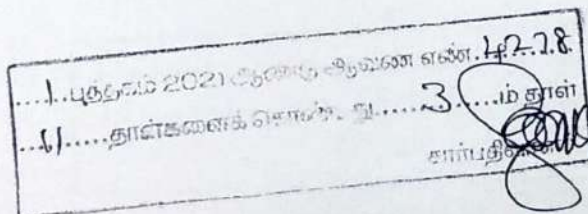 ...1...புத்தகம் 2021 ஆண்டு ஆவண எண்.4278.
...11.....தாள்களைக் கொண்டது......3......ம் தாள்
சார்பதிவாளர்